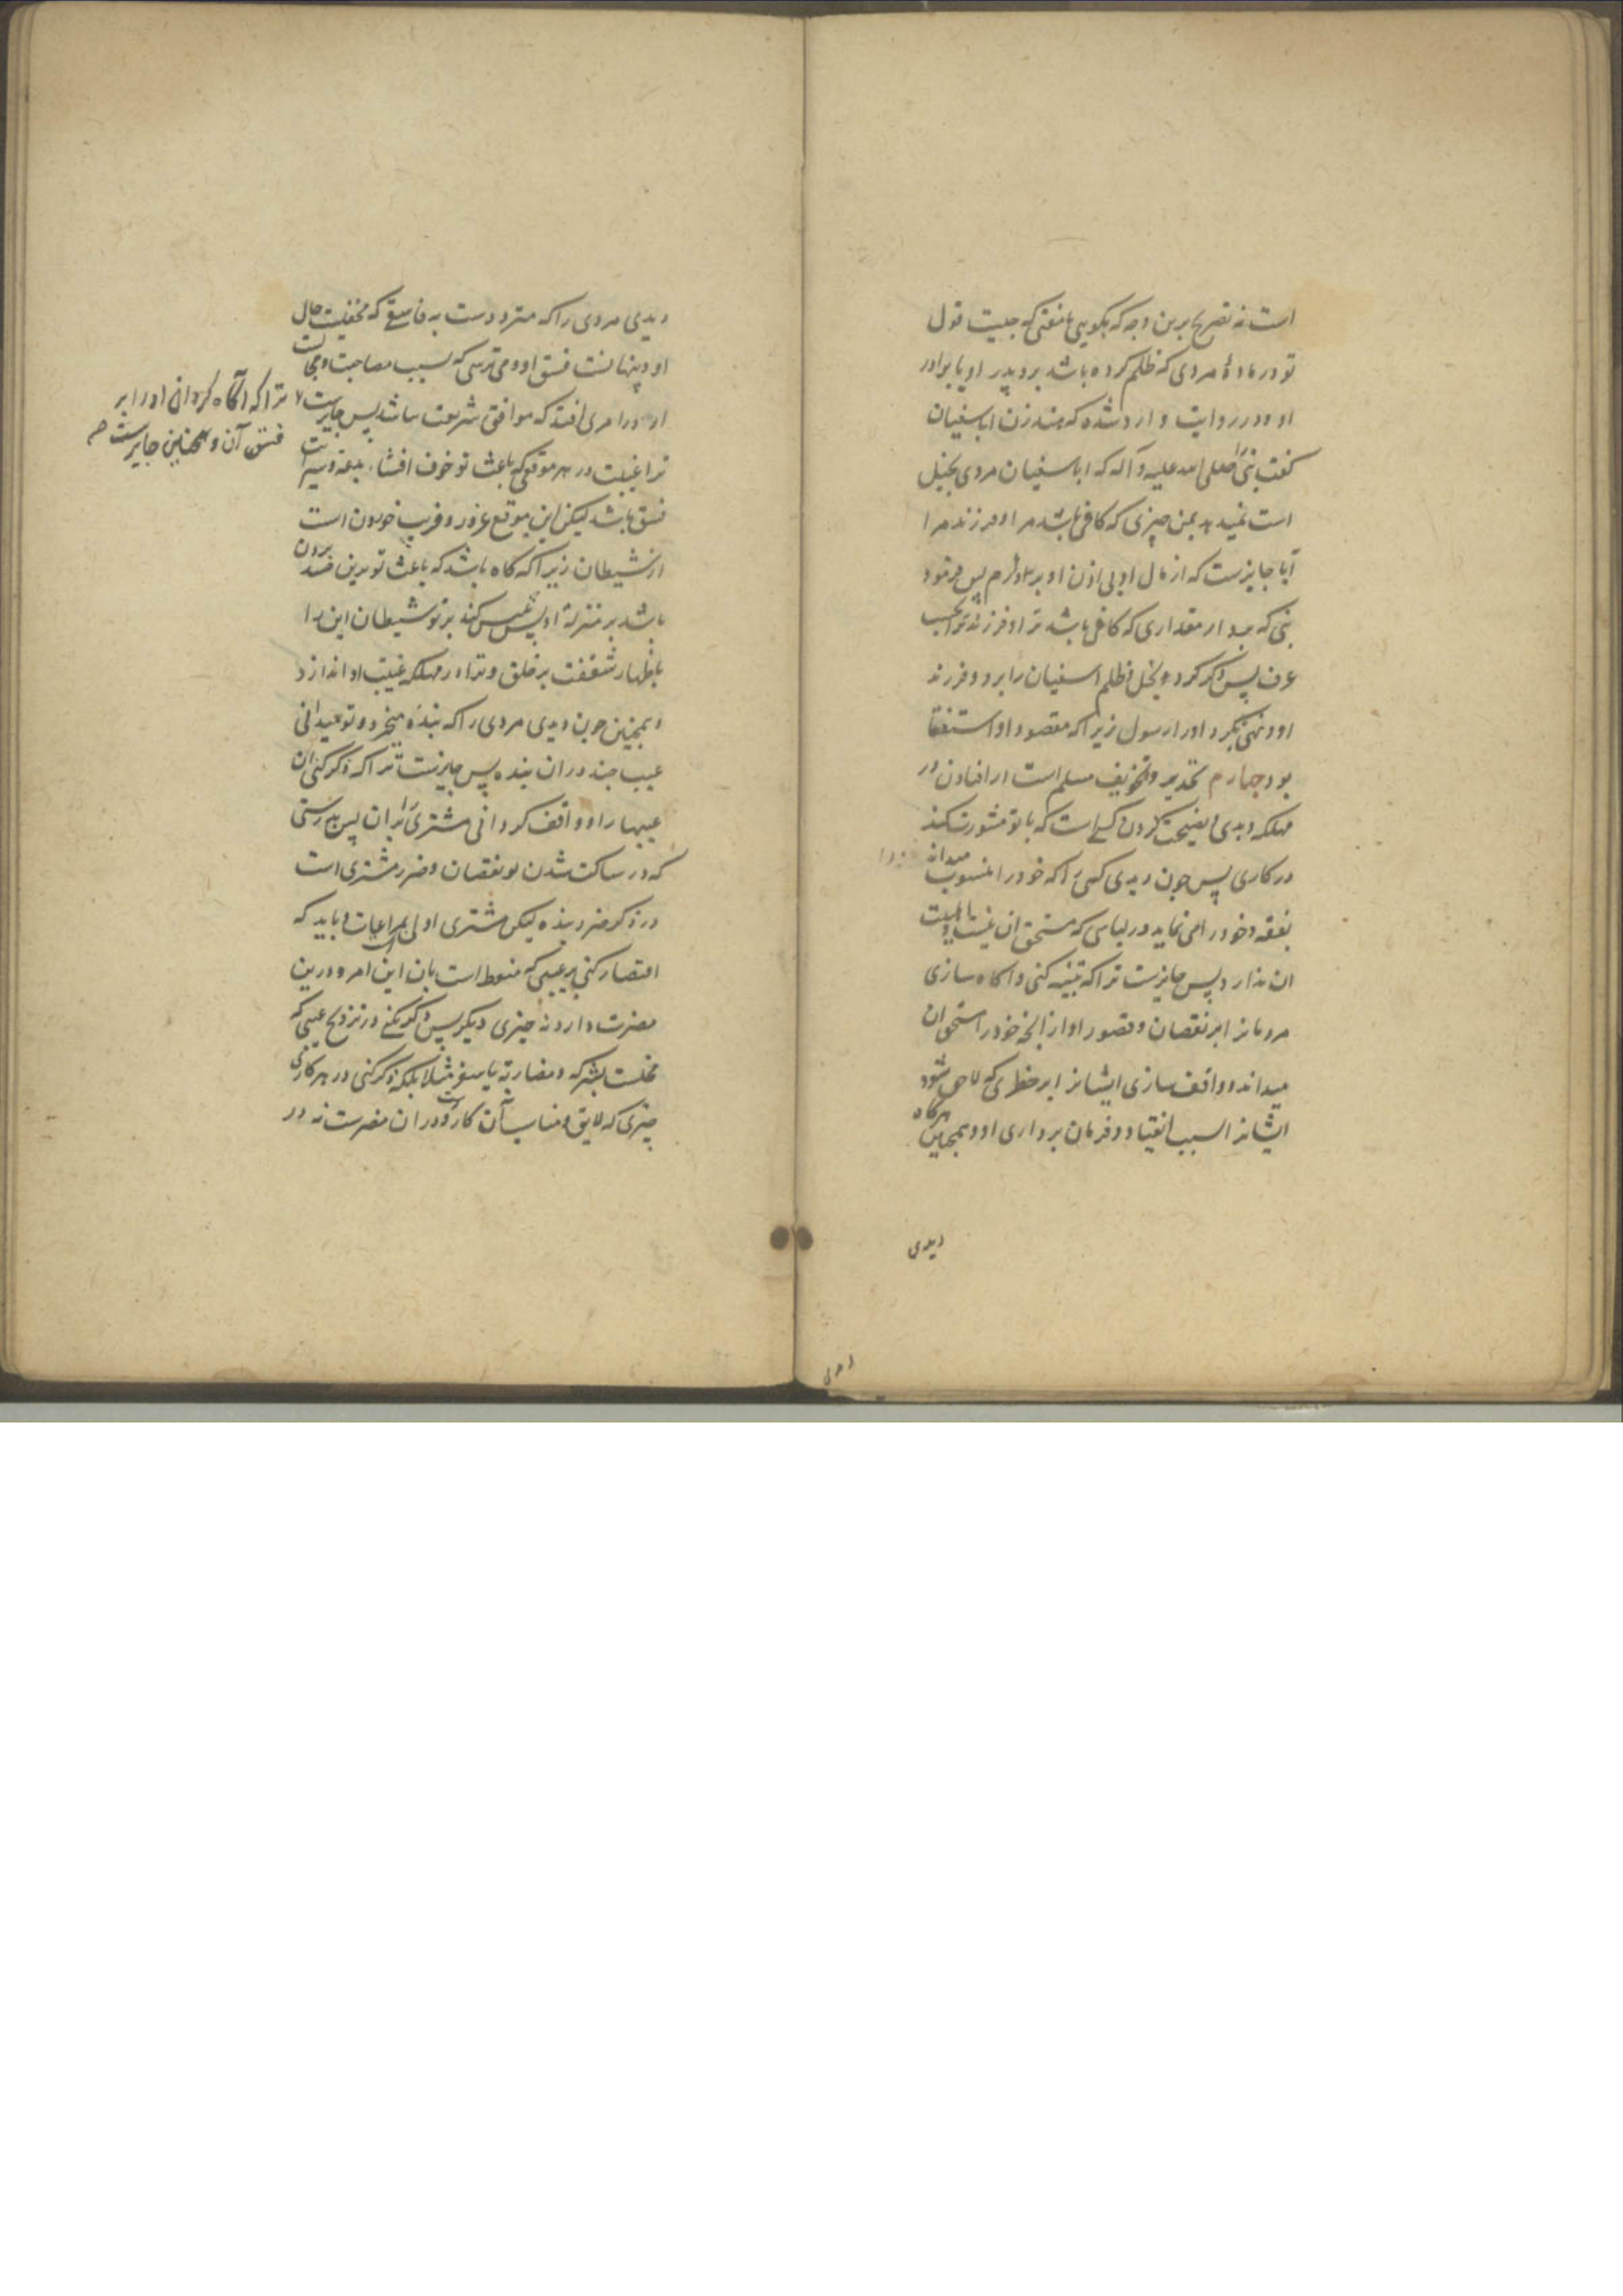 است نه تصریح برین وجه که بگویی با مفتی که چیست قول
تو در مادهٔ مردی که ظلم کرده باشد برو پدر او یا برادر
او و در روایت وارد شده که هند زن اباسفیان
گفت نبی را صلی الله علیه و آله که اباسفیان مردی بخیل
است نمیدهد بمن چیزی که کافی باشد مرا و فرزند مرا
آیا جایزست که از مال او بی اذن او بردارم پس فرمود
نبی که بردار مقداری که کافی باشد ترا و فرزند ترا بحسب
عرف پس ذکر کرد و بخل و ظلم اسفیان را برو و فرزند
او و نهی نکرد او را رسول زیرا که مقصود او استفتا
بود چهارم تحذیر و تخویف مسلم است از افتادن در
مهلکه و بدی و نصیحت کردن کسی است که با تو مشورت کند
در کاری پس چون دیدی کسی را که خود را منسوب میداند
بفقه و خود را می نماید در لباسی که مستحق ان نیست و اهلیت
ان ندارد پس جایزست ترا که تنبیه کنی و اکاه سازی
مردمانرا بر نقصان و قصور او از انچه خود را مستحق ان
میداند و واقف سازی ایشانرا بر خطری که لاحق میشود
ایشانرا بسبب انقیاد و فرمان برداری او و همچنین هرکاه
دیدی
دیدی مردی را که متردد است به فاسقی که مخفیست حال
او و پنهانست فسق او و می ترسی که بسبب مصاحبت و مجالست
او در امری افتد که موافق شریعت نباشد پس جایزست
ترا که آگاه گردانی او را بر
فسق آن و همچنین جایزست
ترا غیبت در هر موقعی که باعث تو خوف افشاء بدعه و سرایت
فسق باشد لیکن این موقع غرور و فریب خوردن است
از شیطان زیرا که گاه باشد که باعث تو بدین حسد بردن
باشد بر منزلة او پس تلبیس کند بر تو شیطان این را
باظهار شفقت بر خلق و ترا در مهلکه غیبت او اندازد
و همچنین چون دیدی مردی را که بنده میخرد و تو میدانی
عیب چند در ان بنده پس جایزست ترا که ذکر کنی ان
عیبها را و واقف گردانی مشتری را بران پس بدرستی
که در ساکت شدن تو نقصان و ضرر مشتری است
و در ذکر ضرر بنده لیکن مشتری اولی بمراعات است و باید که
اقتصار کنی بر عیبی که منوط است بان این امر و درین
مضرت دارد نه چیزی دیگر پس ذکر نکنی در تزویج عیبی که
مخلست بشرکه و مضاربه یا سفر مثلا بلکه ذکر کنی در هر کاری
چیزی که لایق و مناسب آن کارست و در ان مضرست نه در